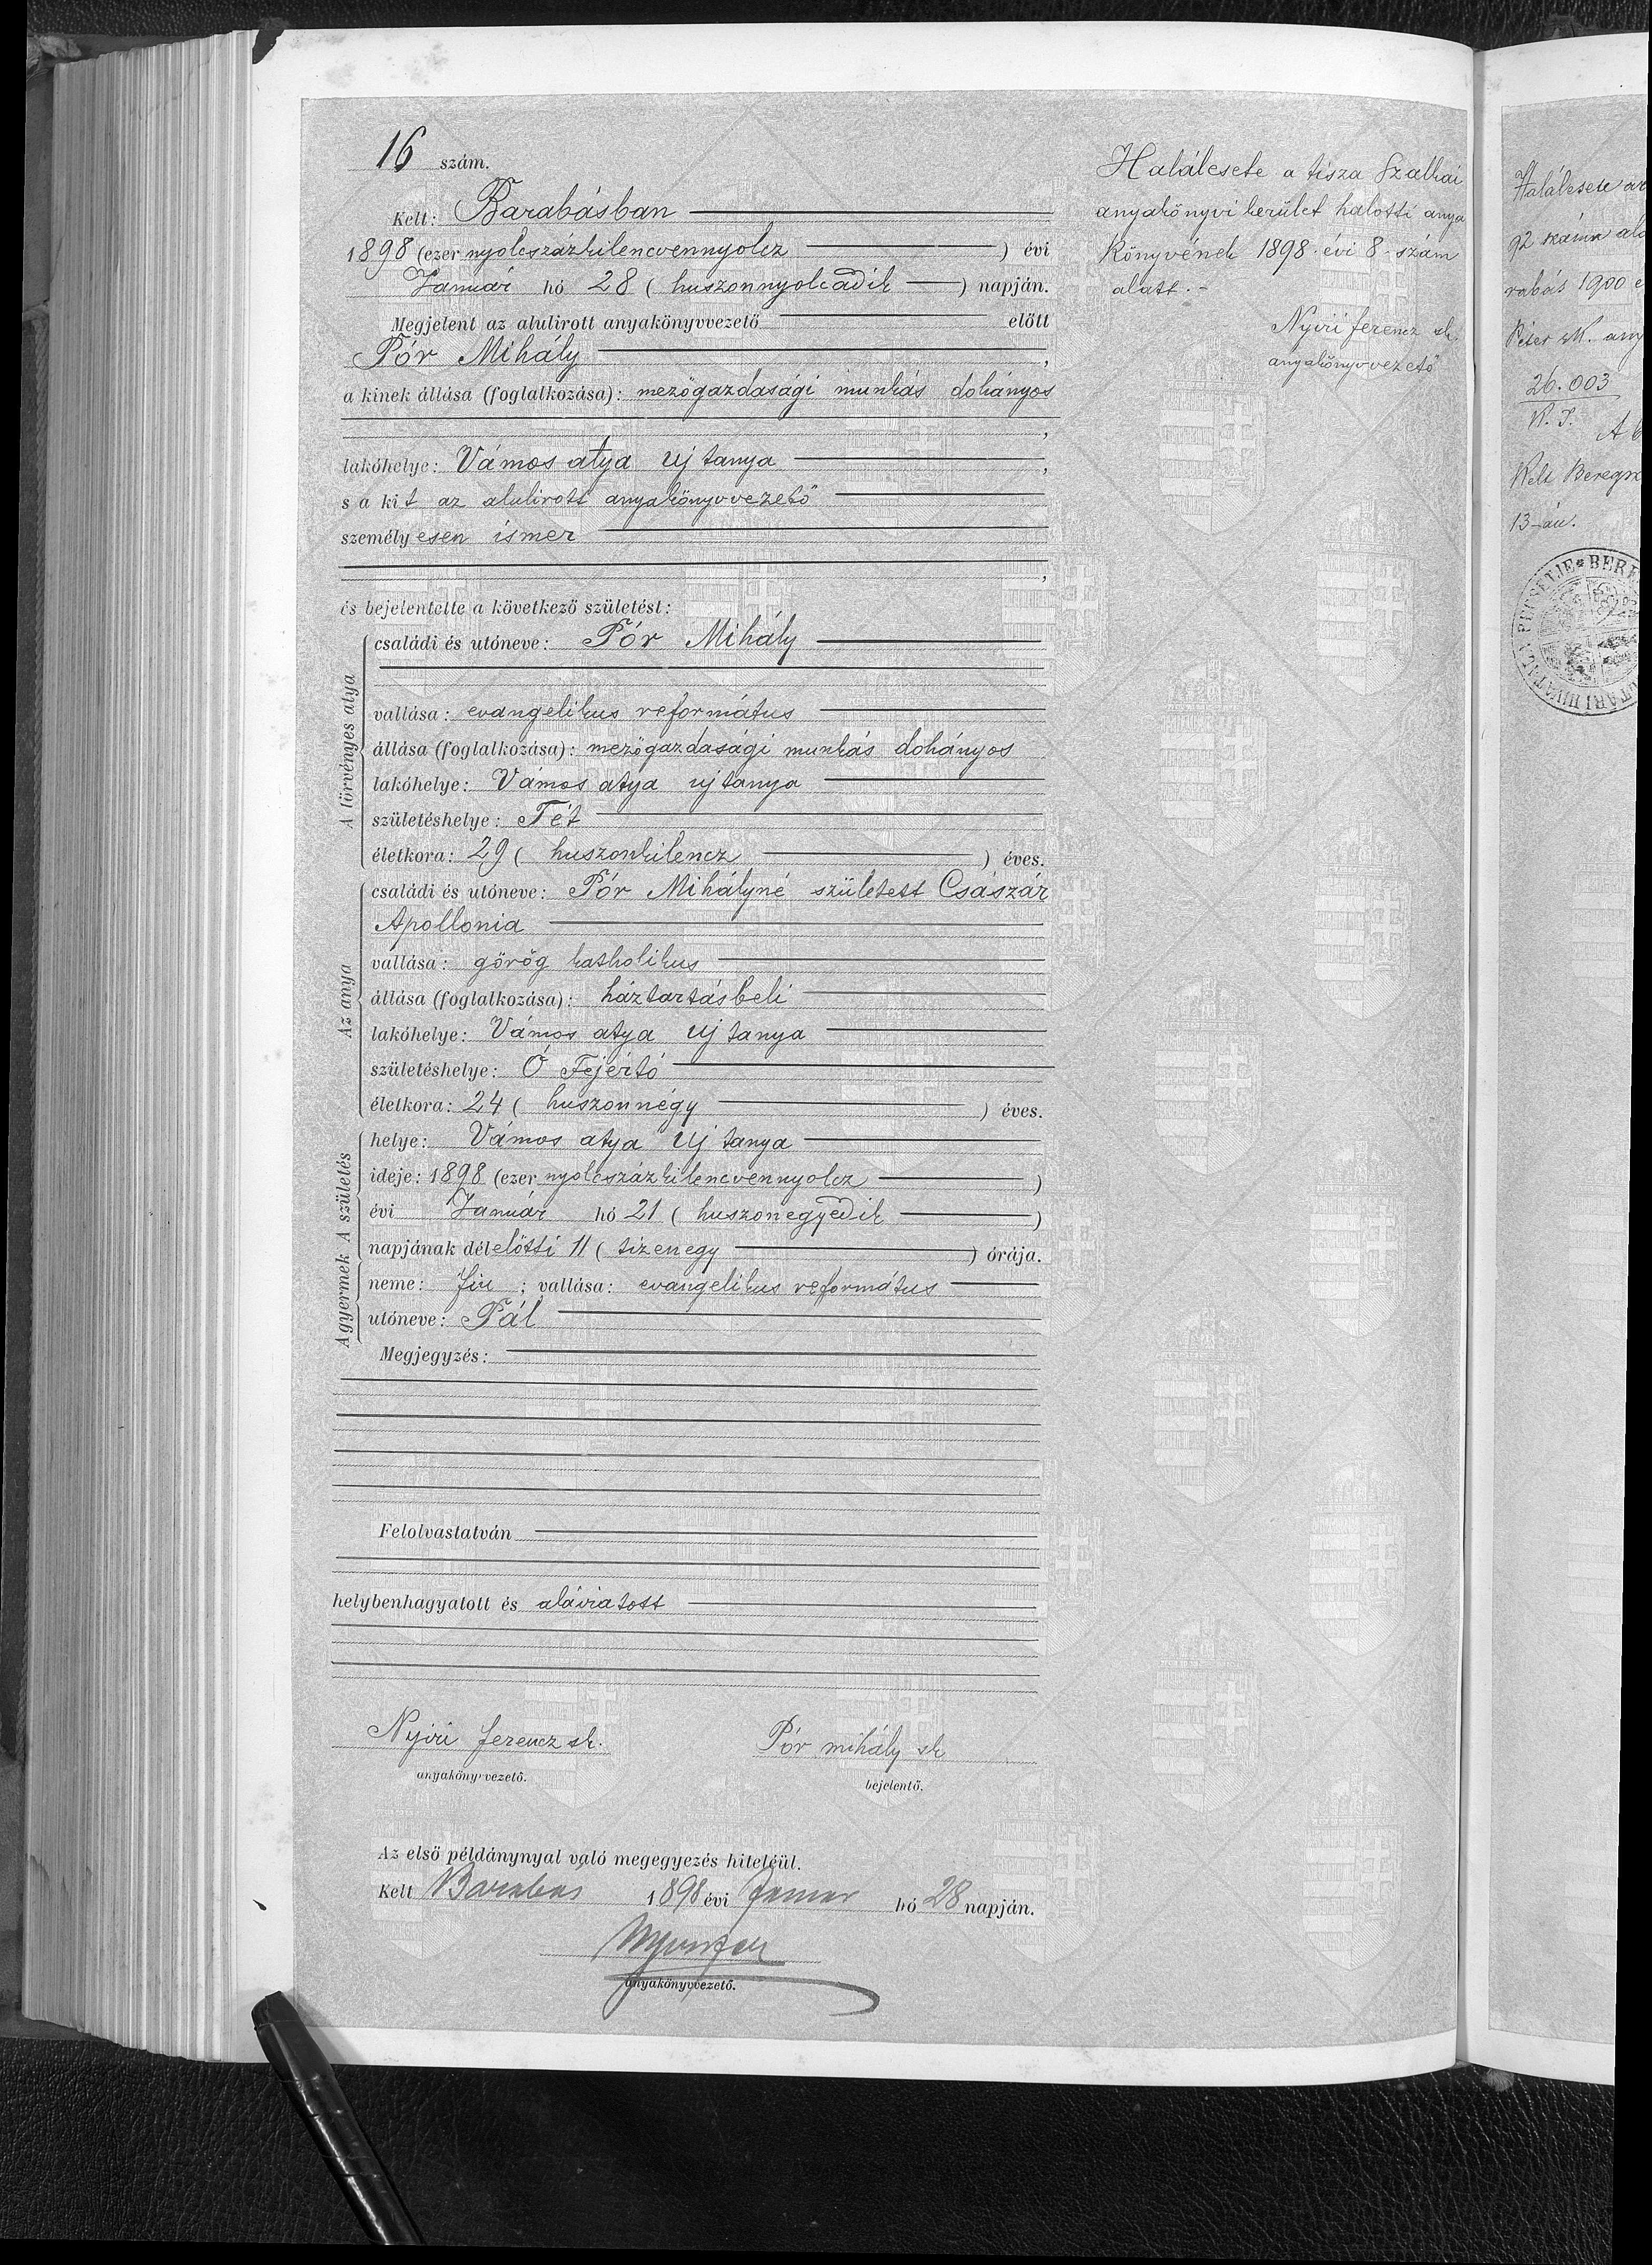 16 szám.
Kelt: Barabásban
1898 (ezer nyolcszázkilencvennyolcz) évi
Január hó 28 (huszonnyolcadik) napján.
Megjelent az alulirott anyakönyvvezető előtt
Pór Mihály,
a kinek állása (foglalkozása): mezőgazdasági munkás dohányos
,
lakóhelye: Vámos atya uj tanya,
s a kit az alulirott anyakönyvvezető
személyesen ismer
,
és bejelentette a következő születést:
A törvényes atya
családi és utóneve: Pór Mihály
vallása: evangelikus református
állása (foglalkozása): mezőgazdasági munkás dohányos
lakóhelye: Vámos atya uj tanya
születéshelye: Tét
életkora: 29 (huszonkilencz) éves.
Az anya
családi és utóneve: Pór Mihályné született Császár
Apollonia
vallása: görög katholikus
állása (foglalkozása): háztartásbeli
lakóhelye: Vámos atya uj tanya
születéshelye: Ó Fejértó
életkora: 24 (huszonnégy) éves.
A születés
helye: Vámos atya uj tanya
ideje: 1898 (ezer nyolcszázkilencvennyolcz)
évi Január hó 21 (huszonegyedik)
napjának délelőtti 11 (tizenegy) órája.
A gyermek
neme: fiu; vallása: evangelikus református
utóneve: Pál
Megjegyzés:
Felolvastatván
helybenhagyatott és aláiratott
Nyiri ferencz sk. Pór mihály sk
anyakönyvvezető. bejelentő.
Az első példánynyal való megegyezés hiteléül.
Kelt Barabás 1898 évi Januar hó 28 napján.
anyakönyvvezető.
Halálesete a tisza Szalkai
anyakönyvi kerület halotti anya
könyvének 1898 évi 8 szám
alatt.-
Nyiri ferencz sk.
anyakönyvvezető
Halálesete
92 száma
1900
26.003
Kelt
13-án.